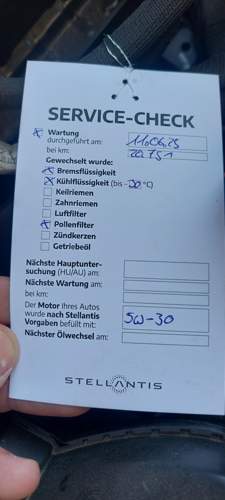 SERVICE-CHECK
x Wartung
durchgeführt am: 11.06.25
bei km: 22.751
Gewechselt wurde:
x Bremsflüssigkeit
x Kühlflüssigkeit (bis -30 °C)
Keilriemen
Zahnriemen
Luftfilter
x Pollenfilter
Zündkerzen
Getriebeöl
Nächste Hauptunter-
suchung (HU/AU) am:
Nächste Wartung am:
bei km:
Der Motor Ihres Autos
wurde nach Stellantis
Vorgaben befüllt mit: 5W-30
Nächster Ölwechsel am:
STELLANTIS